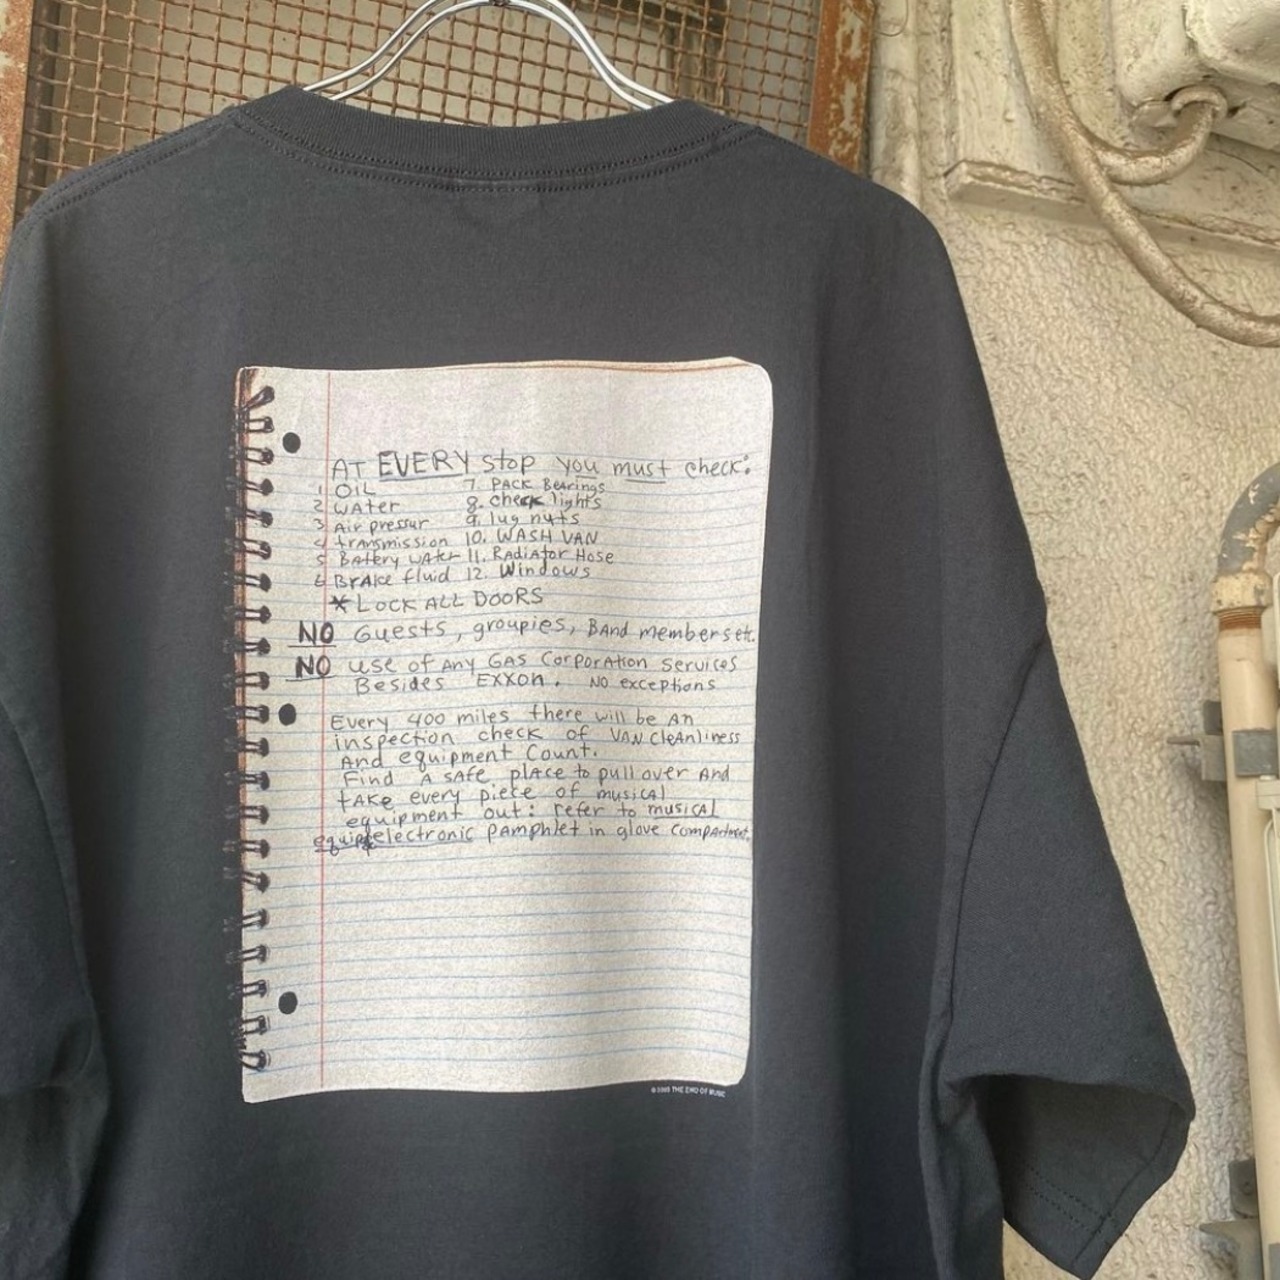 AT EVERY stop you must check:
1 OIL 7. PACK Bearings
2 WAter 8. check lights
3 Air pressur 9. lug nuts
4 transmission 10. WASH VAN
5 Battery WAter 11. Radiator Hose
6 BrAke fluid 12. Windows
* LOCK ALL DOORS
NO Guests, groupies, BAnd members etc.
NO use of Any GAS CorporAtion Services
Besides EXXON. NO exceptions
Every 400 miles there will be An
inspection check of VAN CleAnliness
And equipment Count.
Find A sAfe place to pull over And
tAKe every piece of musicAl
equipment out: refer to musicAl
equip electronic pAmphlet in glove compArtment.
THE END OF MUSIC